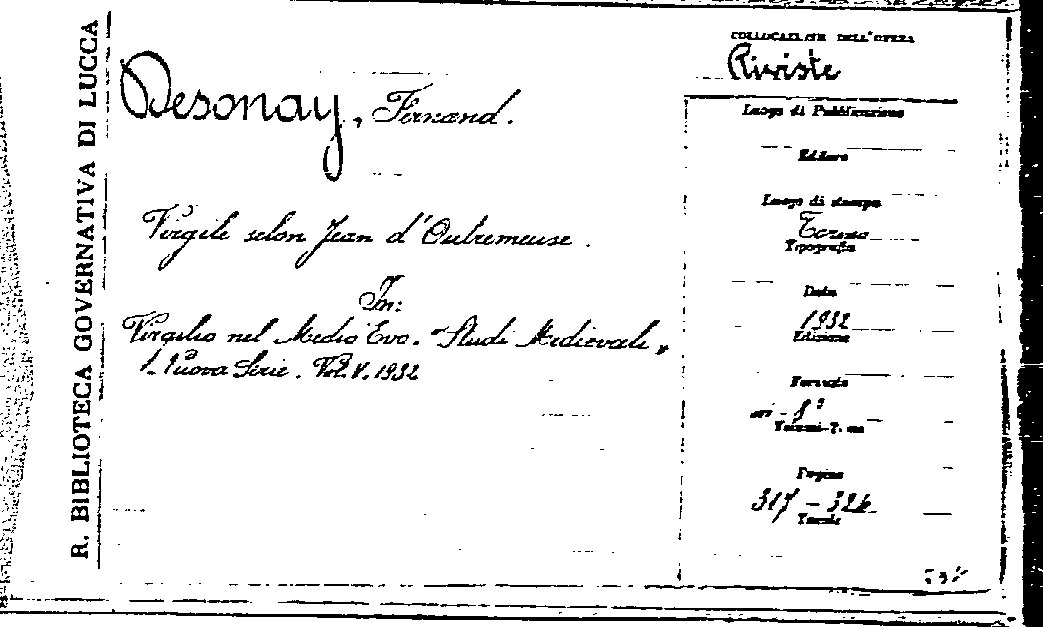 R. BIBLIOTECA GOVERNATIVA DI LUCCA
Desonay, Fernand.
Virgile selon Jean d'Outremeuse.
In:
Virgilio nel Medio Evo. "Studi Medievali"
Nuova Serie. Vol. V. 1932
COLLOCAZIONE DELL'OPERA
Riviste
Luogo di Pubblicazione
Editore
Luogo di stampa
Torino
Tipografia
Data
1932
Edizione
Formato
in-8°
Pagine
317-326
Tavole